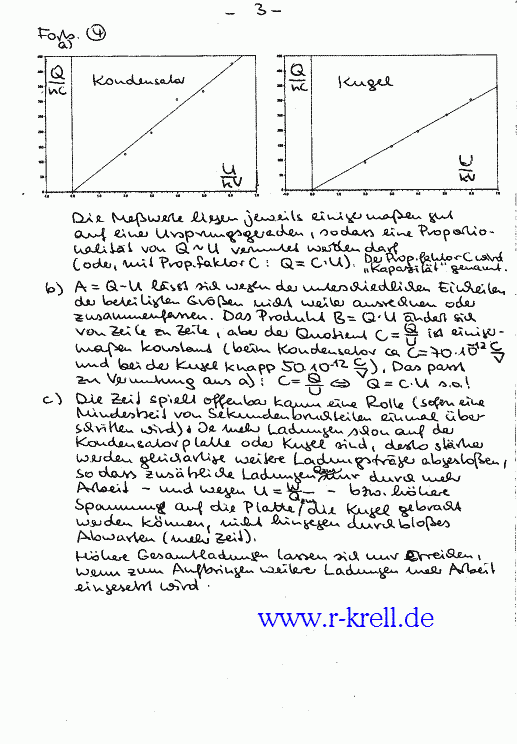 - 3 -
Forts. ④
a)
Q/nC Kondensator U/kV
Q/nC Kugel U/kV
Die Meßwerte liegen jeweils einigermaßen gut
auf einer Ursprungsgeraden, sodass eine Proportio-
nalität von Q ~ U vermutet werden darf
(oder, mit Prop.faktor C : Q = C·U). Der Prop.faktor C wird
"Kapazität" genannt.
b) A = Q - U lässt sich wegen der unterschiedlichen Einheiten
der beteiligten Größen nicht weiter ausrechnen oder
zusammenfassen. Das Produkt B = Q·U ändert sich
von Zeile zu Zeile, aber der Quotient C = Q/U ist einiger-
maßen konstant (beim Kondensator ca C = 70·10⁻¹² C/V
und bei der Kugel knapp 50·10⁻¹² C/V). Das passt
zur Vermutung aus a) : C = Q/U ⇔ Q = C·U s.o!
c) Die Zeit spielt offenbar kaum eine Rolle (sofern eine
Mindestzeit von Sekundenbruchteilen einmal über-
schritten wird): Je mehr Ladungen schon auf der
Kondensatorplatte oder Kugel sind, desto stärker
werden gleichartige weitere Ladungsträger abgestoßen,
so dass zusätzliche Ladungen nur durch mehr
Arbeit - und wegen U = W/Q - bzw. höhere
Spannung auf die Platte / die Kugel gebracht
werden können, nicht hingegen durch bloßes
Abwarten (mehr Zeit).
Höhere Gesamtladungen lassen sich nur erreichen,
wenn zum Aufbringen weiterer Ladungen mehr Arbeit
eingesetzt wird.
www.r-krell.de